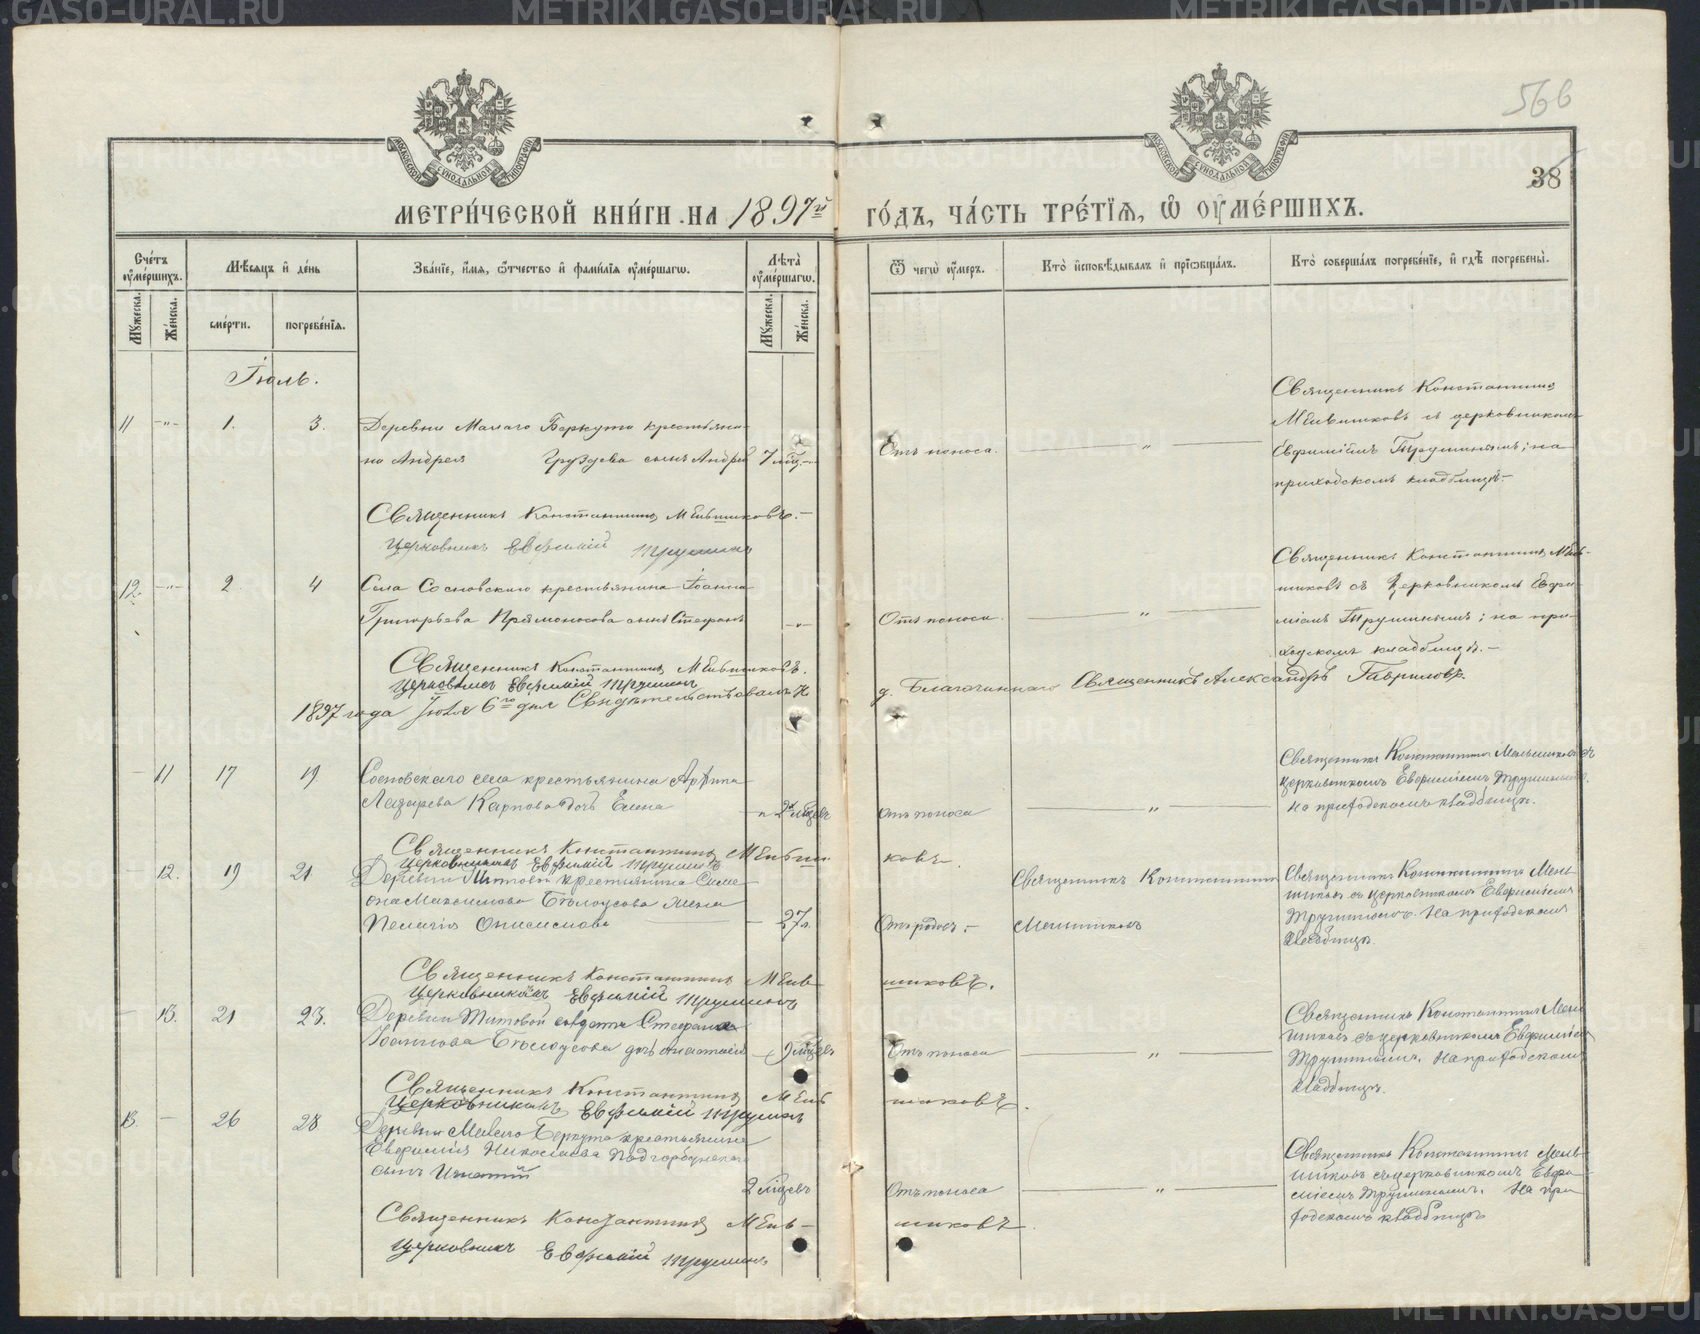 566
38
МЕТРИЧЕСКОЙ КНИГИ НА 1897й ГОДЪ, ЧАСТЬ ТРЕТІЯ, Ѡ ОУМЕРШИХЪ.
Счетъ оумершихъ.
Мѣсяцъ и день
Званіе, имя, ѿчество и фамилія оумершагѡ.
Лѣта оумершагѡ.
Ѿ чегѡ оумеръ.
Кто исповѣдывалъ и пріѡбщалъ.
Кто совершалъ погребеніе, и гдѣ погребены.
Мужеска. Женска. смерти. погребенія. Мужеска. Женска.
Іюль.
11 -"- 1. 3. Деревни Малаго Беркута крестьяни-
на Андрея Груздева сынъ Андрей 7 мц. Отъ поноса. — " —
Священникъ Константинъ
Мельшиковъ съ церковникомъ
Евфиміемъ Трушинымъ; на
приходскомъ кладбищѣ.-
Священникъ Константинъ Мельшиковъ.-
Церковникъ Евфимій Трушинъ
12. -"- 2. 4 Села Сосновскаго крестьянина Іоанна
Григорьева Прямоносова сынъ Стефанъ -"- Отъ поноса. — " —
Священникъ Константинъ Мель-
шиковъ съ церковникомъ Евфи-
міемъ Трушинымъ; на при-
ходскомъ кладбищѣ.-
Священникъ Константинъ Мельшиковъ.
Церковникъ Евфимій Трушинъ
1897 года Іюля 6го дня Свидѣтельствовалъ И
д. Благочиннаго Священникъ Александръ Гавриловъ.
- 11 17 19 Сосновскаго села крестьянина Архипа
Лазарева Карпова дочь Елена 2 мѣсяц отъ поноса — " —
Священникъ Константинъ Мельшиковъ съ
церковникомъ Евфиміемъ Трушинымъ.
На приходскомъ кладбищѣ.
Священникъ Константинъ Мельши-
ковъ.
Церковникъ Евфимій Трушинъ
- 12. 19 21 Деревни Титовой крестьянина Симе
она Максимова Бѣлоусова жена
Пелагія Онисимова — 27 л. Отъ родов.- Священникъ Константинъ
Меньшиковъ
Священникъ Константинъ Мель-
шиковъ съ церковникомъ Евфиміемъ
Трушинымъ. На приходскомъ
кладбищѣ.
Священникъ Константинъ Мель-
шиковъ.
Церковникъ Евфимій Трушинъ
- 13. 21 23. Деревни Титовой солдата Стефана
Іоаннова Бѣлоусова дочь Анастасія — 9 мѣсяц Отъ поноса — " —
Священникъ Константинъ Мель
шиковъ съ церковникомъ Евфиміемъ
Трушинымъ. На приходскомъ
кладбищѣ.
Священникъ Константинъ Мель
шиковъ.
Церковникъ Евфимій Трушинъ
13. — 26 28 Деревни Малаго Беркута крестьянина
Евфимія Николаева Подгорбунскаго
сынъ Игнатій 2 мѣсяц Отъ поноса — " —
Священникъ Константинъ Мель-
шиковъ съ церковникомъ Евфи-
міемъ Трушинымъ. На при
ходскомъ кладбищѣ
Священникъ Константинъ Мель-
шиковъ.
Церковникъ Евфимій Трушинъ
METRIKI.GASO-URAL.RU